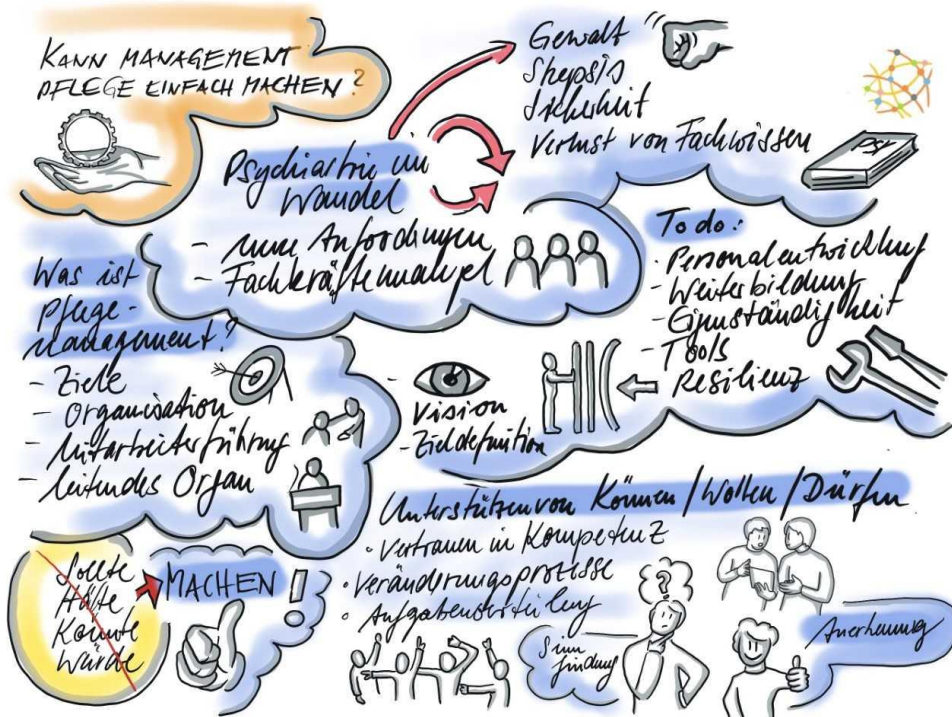 KANN MANAGEMENT
PFLEGE EINFACH MACHEN?
Gewalt
Skepsis
Sicherheit
Verlust von Fachwissen
PSY
Psychiatrie im
Wandel
- neue Anforderungen
- Fachkräftemangel
To do:
- Personalentwicklung
- Weiterbildung
- Eigenständigkeit
- Tools
Resilienz
Was ist
Pflege-
management?
- Ziele
- Organisation
- Mitarbeiterführung
- leitendes Organ
- Vision
- Zieldefinition
Unterstützen von Können / Wollen / Dürfen
• Vertrauen in Kompetenz
• Veränderungsprozesse
• Aufgabenverteilung
Sollte
Hätte
Könnte
Würde
MACHEN!
?
Sinn
findung
Anerkennung